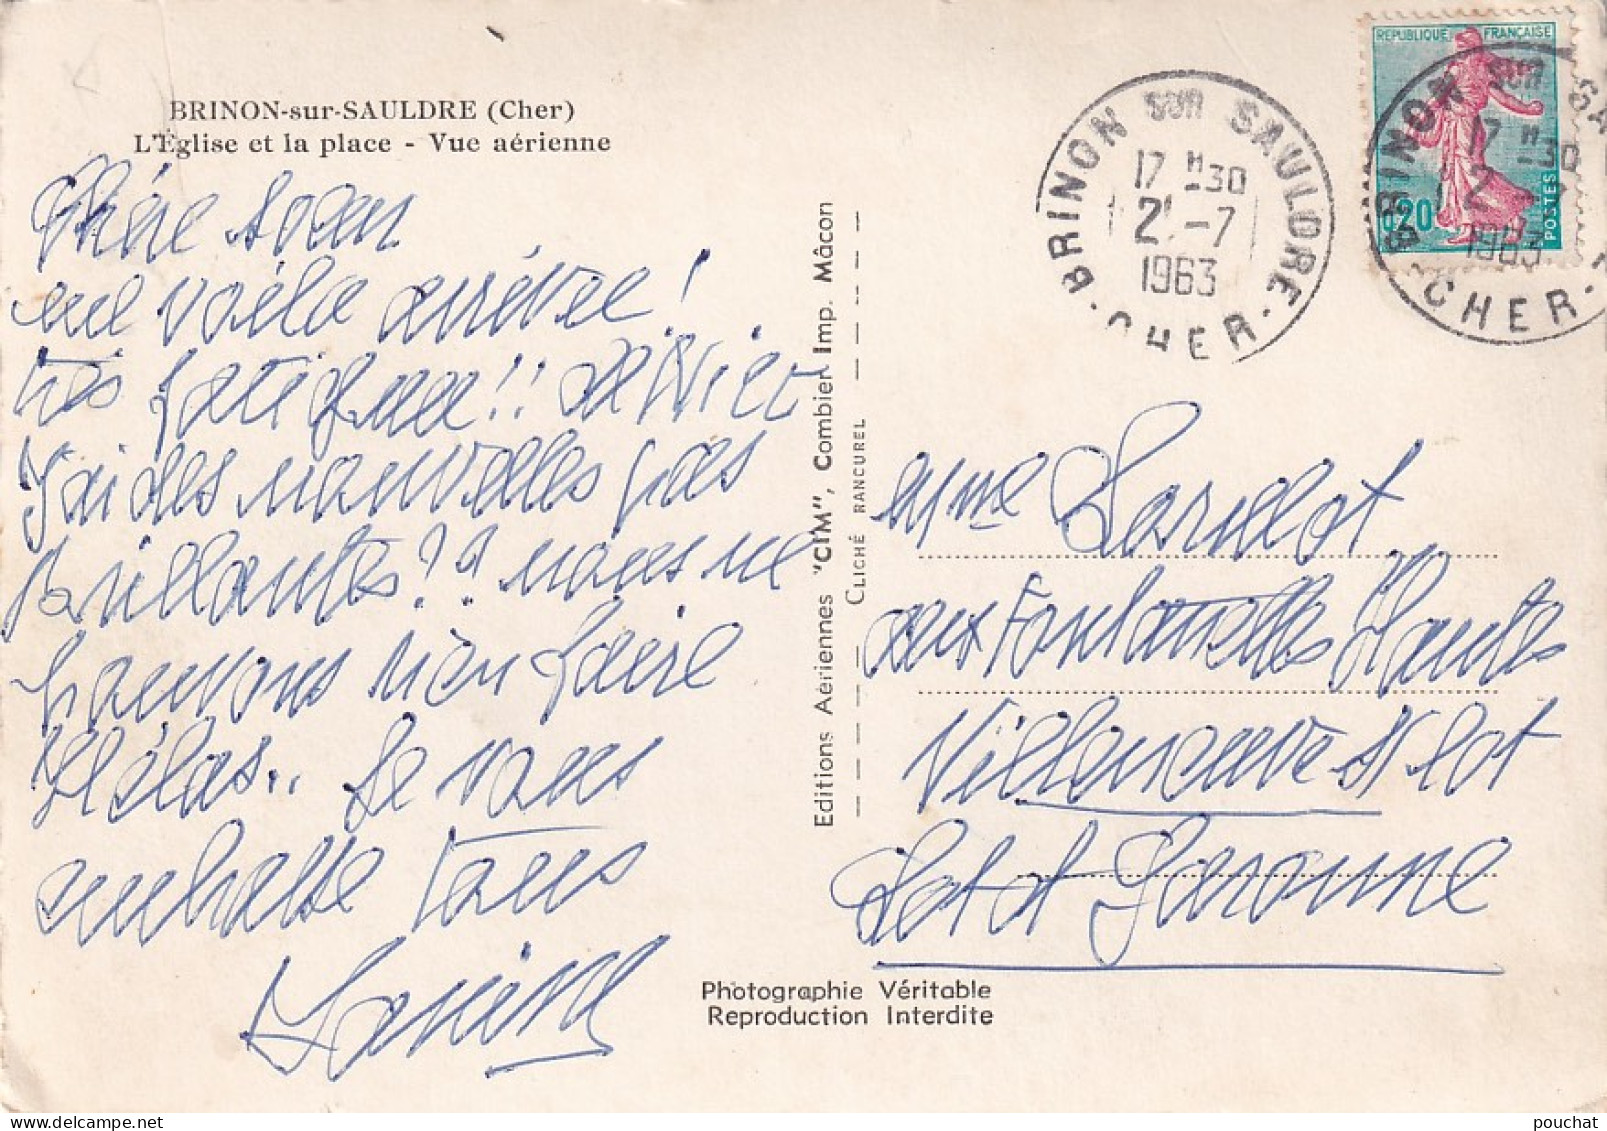 BRINON-sur-SAULDRE (Cher)
L'Église et la place - Vue aérienne
Chère
me voila arrivée!
très fatiguée!!
J'ai des nouvelles pas
brillantes?? nous ne
pouvons rien faire
Hélas.. Je vous
embrasse tous
Editions Aériennes "CIM", Combier Imp. Mâcon
CLICHÉ RANCUREL
REPUBLIQUE FRANÇAISE
0,20
POSTES
BRINON SUR SAULDRE
17 H -30
2 -7
1963
CHER
BRINON SUR SA
17 H -30
2 -7
1963
CHER
Mme
aux Fontanelles Hautes
Villeneuve s/ lot
Lot et Garonne
Photographie Véritable
Reproduction Interdite
pouchat